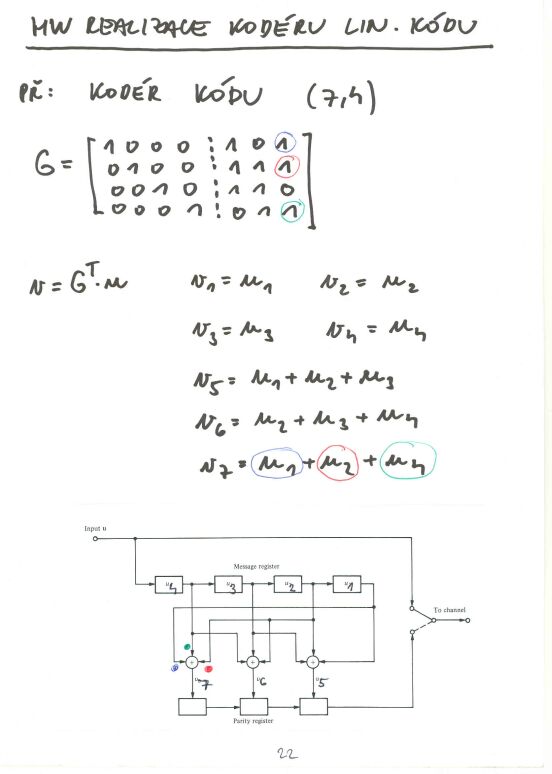 HW REALIZACE KODÉRU LIN. KÓDU
PŘ: KODÉR KÓDU (7,4)
G = [ 1 0 0 0 ⋮ 1 0 1
0 1 0 0 ⋮ 1 1 1
0 0 1 0 ⋮ 1 1 0
0 0 0 1 ⋮ 0 1 1 ]
v = Gᵀ·u
v₁ = u₁ v₂ = u₂
v₃ = u₃ v₄ = u₄
v₅ = u₁ + u₂ + u₃
v₆ = u₂ + u₃ + u₄
v₇ = u₁ + u₂ + u₄
Input u
Message register
u₄ u₃ u₂ u₁
To channel
+ + +
υ₇ υ₆ υ₅
Parity register
22